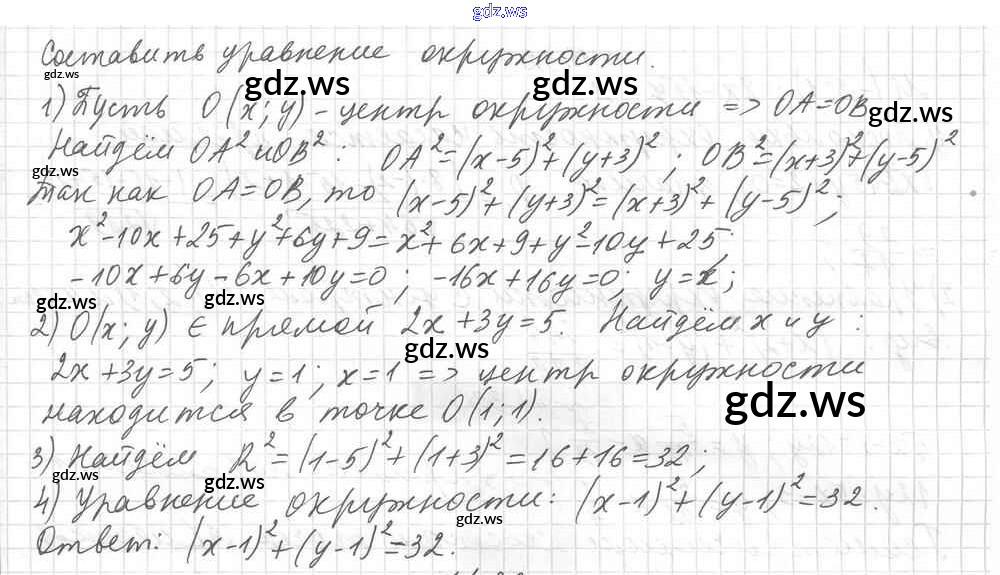 gdz.ws
Составить уравнение окружности.
gdz.ws gdz.ws gdz.ws
1) Пусть O(x; y) – центр окружности => OA=OB
gdz.ws
Найдём OA² и OB²: OA²=(x-5)²+(y+3)²; OB²=(x+3)²+(y-5)²
gdz.ws
Так как OA=OB, то (x-5)²+(y+3)²=(x+3)²+(y-5)²;
x²-10x+25+y²+6y+9=x²+6x+9+y²-10y+25;
-10x+6y-6x+10y=0; -16x+16y=0; y=x;
gdz.ws gdz.ws
2) O(x; y) ∈ прямой 2x+3y=5. Найдём x и y:
gdz.ws
2x+3y=5; y=1; x=1 => центр окружности
gdz.ws
находится в точке O(1;1).
3) Найдём R²=(1-5)²+(1+3)²=16+16=32;
gdz.ws gdz.ws
4) Уравнение окружности: (x-1)²+(y-1)²=32.
gdz.ws
Ответ: (x-1)²+(y-1)²=32.